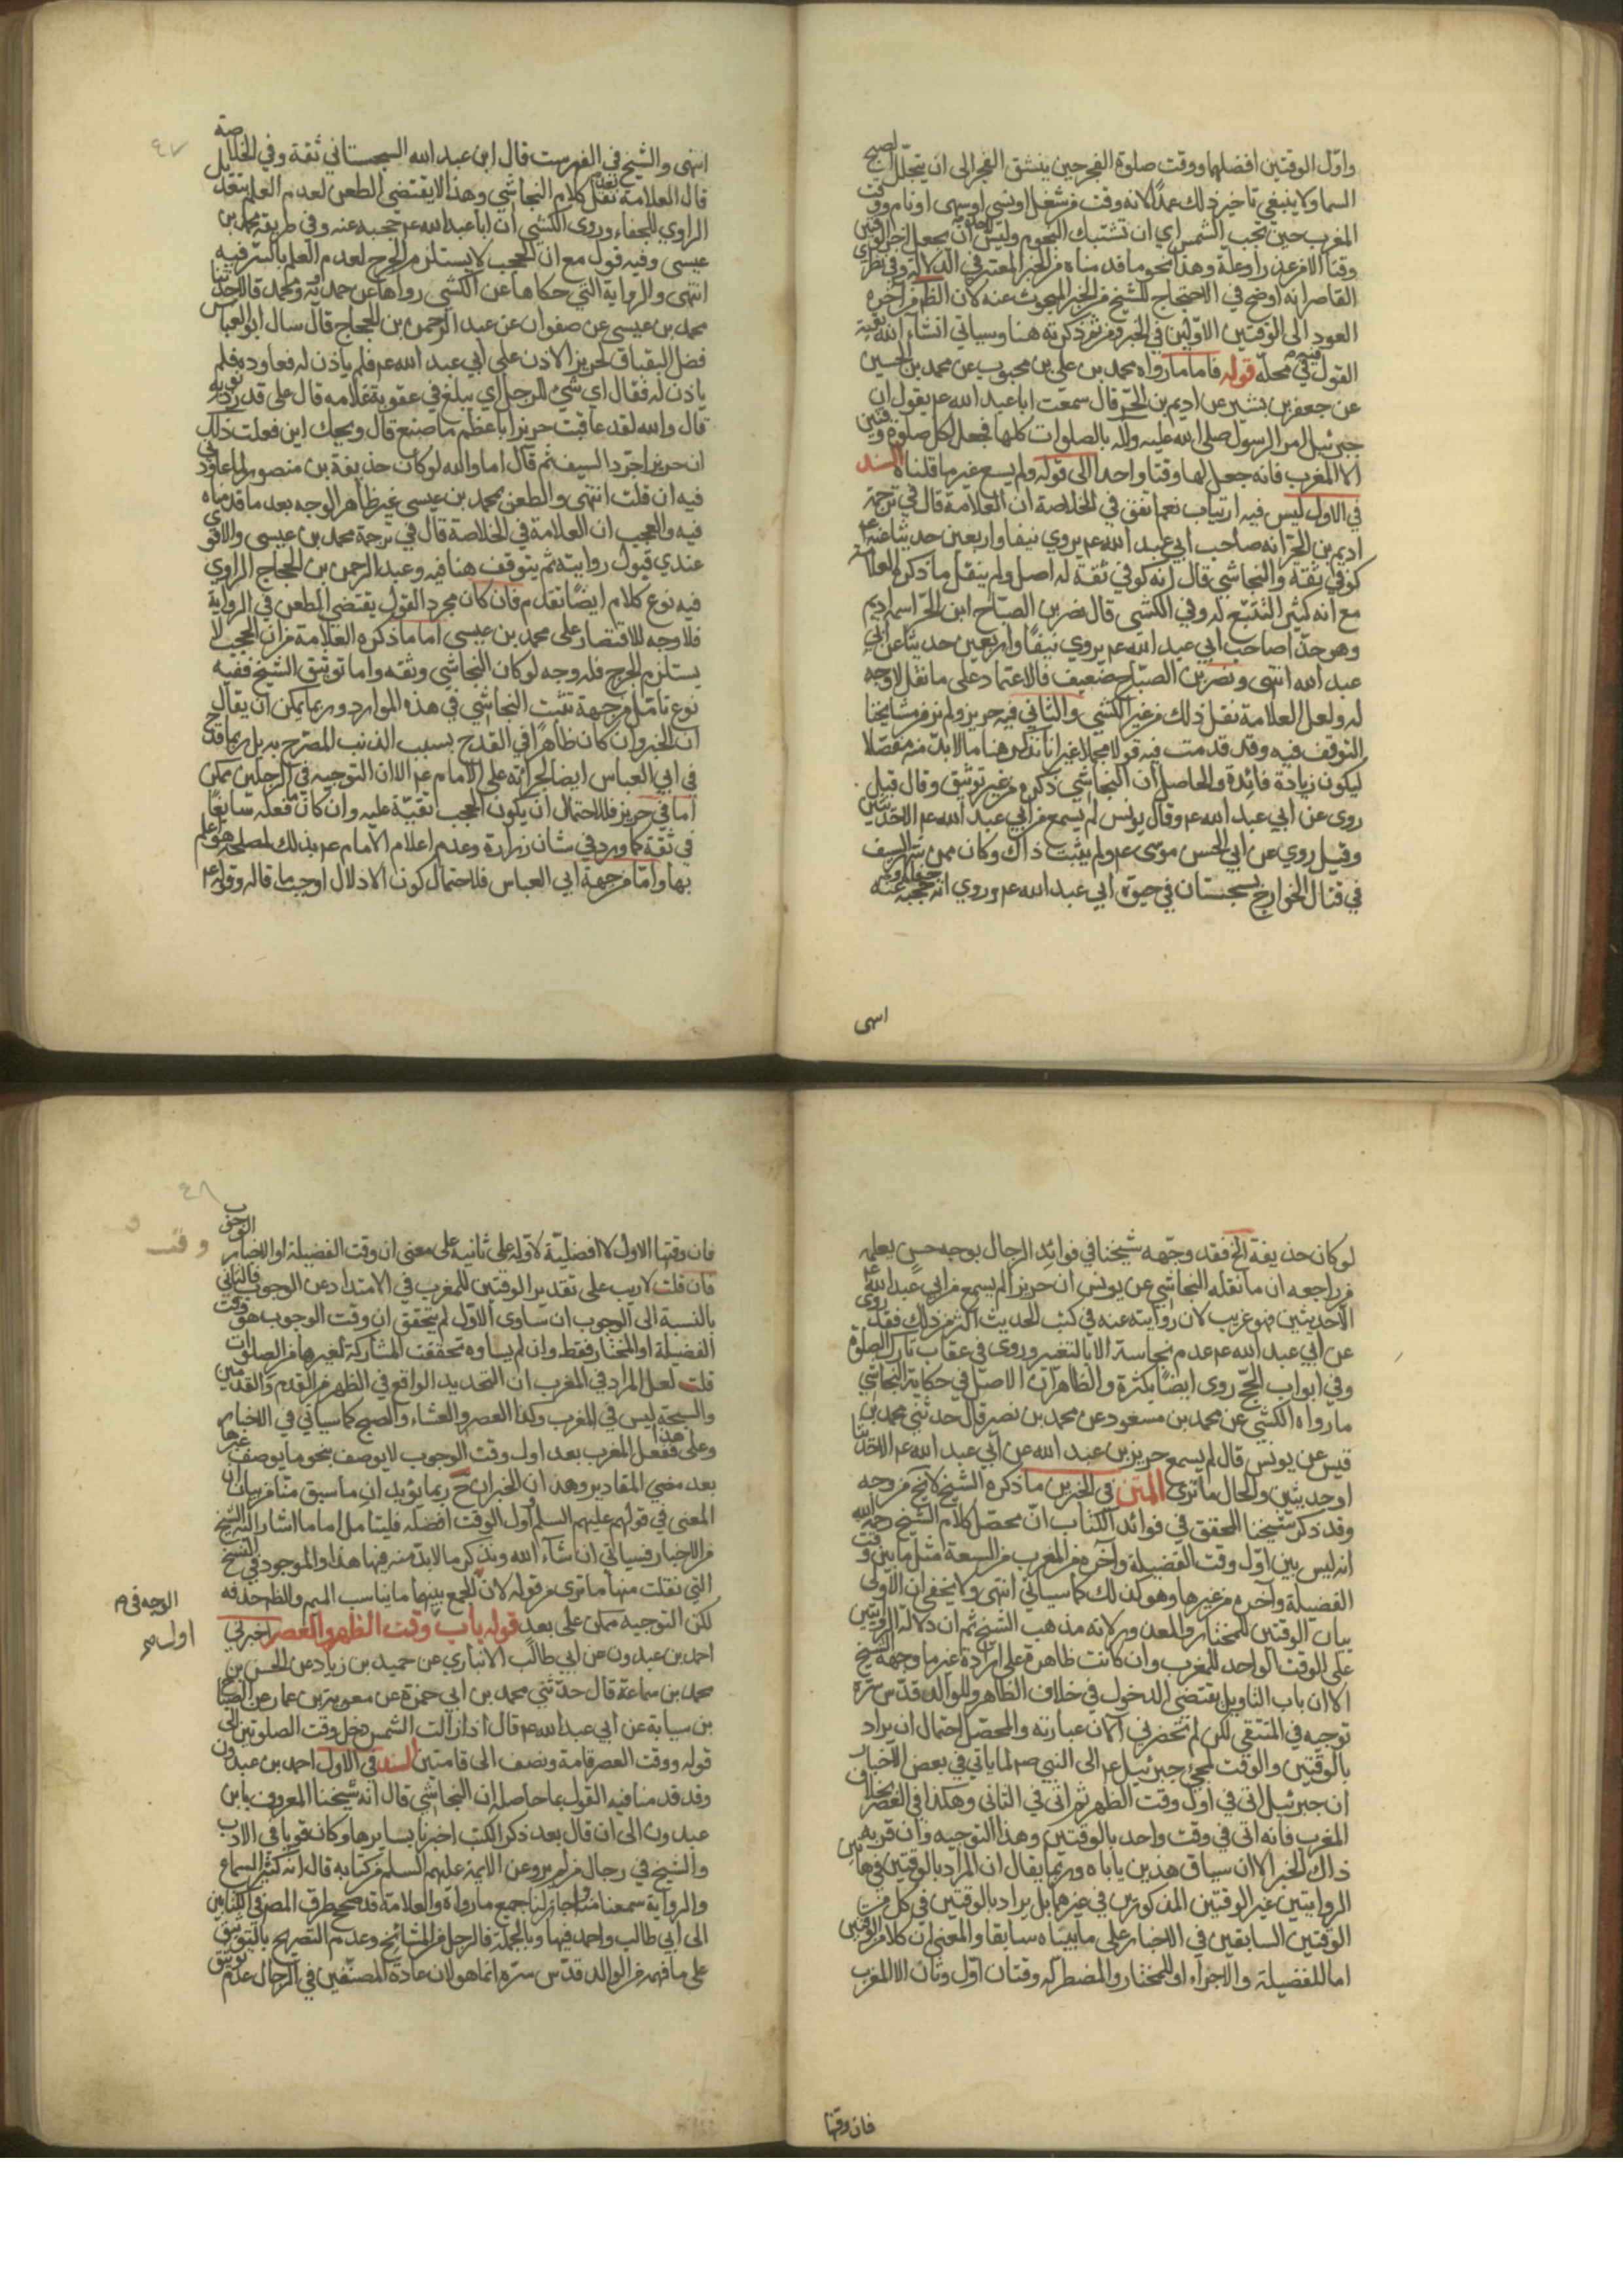 واوّل الوقتين افضلهما ووقت صلوة الفجر حين ينشق الفجر الى ان يتجلّل الصبح
السما ولا ينبغي تاخير ذلك عمدًا لانه وقت من شغل او نسي او سهى او نام ووقت
المغرب حين تجب الشمس اي ان تشتبك النجوم وليس لاحد ان يجعل اخر الوقتين
وقتا الا من عذر او علة وهذا نحو ما قدمناه من الخبر المعتبر في الدلالة وفي نظري
القاصر انه اوضح في الاحتجاج للشيخ من الخبر المبحوث عنه لان الظم من آخره
العود الى الوقتين الاوّلين في الخبر ومن ثم ذكرته هنا وسياتي انشآء الله بقية
القول فيه في محلّه قوله فاما ما رواه محمد بن علي بن محبوب عن محمد بن الحسين
عن جعفر بن بشير عن اديم بن الحّر قال سمعت ابا عبد الله عم يقول ان
جبرئيل امر الرسول صلى الله عليه وآله بالصلوات كلها فجعل لكل صلوة وقتين
الا المغرب فانه جعل لها وقتا واحدا الى قوله ولم يسع غير ما قلناه السند
في الاول ليس فيه ارتياب نعم اتفق في الخلاصة ان العلامة قال في ترجمة
اديم بن الحّر انه صاحب ابي عبد الله عم يروي نيفا واربعين حديثا عنه عم
كوفي ثقة والنجاشي قال انه كوفي ثقة له اصل ولم ينقل ما ذكره العلامة
مع انه كثير التتبّع له وفي الكشي قال نصر بن الصبّاح ابن الحّر اسمه اديم
وهو حذّا صاحب ابي عبد الله عم يروي نيفًا واربعين حديثا عن ابي
عبد الله انتهى ونصر بن الصبّاح ضعيف فالاعتماد على ما نقل لا وجه
له ولعل العلامة نقل ذلك من غير الكشي والثاني فيه حريز ولم نر من مشايخنا
التوقف فيه وقد قدمت فيه قولا مجملا غير انا نذكر هنا ما لا بدّ منه مفصّلا
ليكون زيادة فائدة والحاصل ان النجاشي ذكره من غير توثيق وقال قيل
روى عن ابي عبد الله عم وقال يونس لم يسمع من ابي عبد الله عم الا حديثين
وقيل روي عن ابي الحسن موسى عم ولم يثبت ذاك وكان ممن شهر السيف
في قتال الخوارج بسجستان في حيوة ابي عبد الله عم وروي انه جفاه وحجبه عنه
اسهى
٤٧
انتهى والشيخ في الفهرست قال ابن عبد الله السجستاني ثقة وفي الخلاصة
قال العلامة بعد نقل كلام النجاشي وهذا لا يقتضي الطعن لعدم العلم بتعديل
الراوي للجفاء وروى الكشي ان ابا عبد الله عم حجبه عنه وفي طريقه محمد بن
عيسى وفيه قول مع ان الحجب لا يستلزم الجرح لعدم العلم بالسّر فيه
انتهى والرواية التي حكاها عن الكشي رواها عن حمدويه ومحمد قالا حدثنا
محمد بن عيسى عن صفوان عن عبد الرحمن بن الحجاج قال سال ابو العباس
فضل البقباق لحريز الاذن على ابي عبد الله عم فلم ياذن له فعاوده فلم
ياذن له فقال اي شيء للرجل اي يبلغ في عقوبة غلامه قال على قدر ذنوبه
قال والله لقد عاقبت حريزا باعظم ما صنع قال ويحك اين فعلت ذلك
ان حريزا جرّد السيف ثم قال اما والله لو كان حذيفة بن منصور لما عاود في
فيه ان قلت انتهى والطعن بمحمد بن عيسى غير ظاهر الوجه بعد ما قدمناه
فيه والعجب ان العلامة في الخلاصة قال في ترجمة محمد بن عيسى والاقوى
عندي قبول روايته ثم يتوقف هنا فيه وعبد الرحمن بن الحجاج الراوي
فيه نوع كلام ايضًا تقدم فان كان مجرد القول يقتضي الطعن في الرواية
فلا وجه للاقتصار على محمد بن عيسى اما ما ذكره العلامة من ان الحجب لا
يستلزم الجرح فله وجه لو كان النجاشي وثقه واما توثيق الشيخ ففيه
نوع تامّل من جهة تثبت النجاشي في هذه الموارد وربما يمكن ان يقال
ان الخبر وان كان ظاهرًا في القدح بسبب الذنب المصّرح به بل ربما قدح
في ابي العباس ايضا لجراته على الامام عم الا ان التوجيه في الرجلين ممكن
اما في حريز فللاحتمال ان يكون الحجب تقيّة عليه وان كان فعله سايغًا
في ثقة كما ورد في شان زرارة وعدم اعلام الامام عم بذلك لمصلحة هو اعلم
بها وامّا من جهة ابي العباس فلاحتمال كون الادلال اوجب ما قاله وقوله عم
لو كان حذيفة الخ فقد وجّهه شيخنا في فوائد الرجال بوجه حسن يعلم
من راجعه ان ما نقله النجاشي عن يونس ان حريزا لم يسمع من ابي عبد الله عم
الا حديثين فهو غريب لان روايته عنه في كتب الحديث اكثر من ذلك فقد روى
عن ابي عبد الله عم عدم نجاسة الا بالتغير وروى في عقاب تارك الصلوة
وفي ابواب الحجّ روى ايضًا بكثرة والظاهر ان الاصل في حكاية النجاشي
ما رواه الكشي عن محمد بن مسعود عن محمد بن نصير قال حدثني محمد بن
قيس عن يونس قال لم يسمع حريز بن عبد الله عن ابي عبد الله عم الا حديثا
او حديثين والحال ما ترى المتن في الخبرين ما ذكره الشيخ لا يخ من وجه
وقد ذكر شيخنا المحقق في فوائد الكتاب انّ محصّل كلام الشيخ رحمه الله
انه ليس بين اوّل وقت الفضيلة وآخره من المغرب من السعة مثل ما بين وقت
الفضيلة وآخره من غيرها وهو كذلك كما سياتي انتهى ولا يخفى ان الاولى
بيان الوقتين للمختار والمعذور لانه مذهب الشيخ ثم ان دلالة الروايتين
على الوقت الواحد للمغرب وان كانت ظاهرة على ارادة غير ما وجهه الشيخ
الا ان باب التاويل يقتضي الدخول في خلاف الظاهر وللوالد قدّس سّره
توجيه في المنتقى لكن لم تحضرني الان عبارته والمحصّل احتمال ان يراد
بالوقتين والوقت لمجئ جبرئيل عم الى النبي صم لما ياتي في بعض الاخبار
ان جبرئيل اتى في اول وقت الظهر ثم اتى في الثاني وهكذا في العصر بخلاف
المغرب فانه اتى في وقت واحد بالوقتين وهذا التوجيه وان قربه
ذاك الخبر الا ان سياق هذين ياباه وربما يقال ان المراد بالوقتين في هاتين
الروايتين غير الوقتين المذكورين في غيرهما بل يراد بالوقتين في كل من
الوقتين السابقين في الاخبار على ما بيناه سابقا والمعنى ان كلا من الوقتين
اما للفضيلة والاجزاء او للمختار والمضطر له وقتان اوّل وثان الا المغرب
فان وقتها
٤٨
فان وقتها الاول لا افضليّة لاوّله على ثانيه على معنى ان وقت الفضيلة او الاختيار الوجوب
فان قلت لا ريب على تقدير الوقتين للمغرب في الامتداد عن الوجوب فالثاني
بالنسبة الى الوجوب ان ساوى الاوّل لم يتحقق ان وقت الوجوب هو وقت
الفضيلة او المختار فقط وان لم يساوه تحققت المشاركة لغيرها من الصلوات
قلت لعل المراد في المغرب ان التحديد الواقع في الظهر من القدم والقدمين
والسبحة ليس في المغرب وكذا العصر والعشاء والصبح كما سياتي في الاخبار
وعلى هذا ففعل المغرب بعد اول وقت الوجوب لا يوصف بنحو ما يوصف غيرها
بعد مضي المقادير وهذان الخبران ح ربما يؤيدان ما سبق منّا من بيان
المعنى في قولهم عليهم السلم اول الوقت افضله فليتامل اما ما اشار اليه الشيخ
من الاخبار فسياتي ان شآء الله ونذكر ما لا بدّ منه فيها هذا والموجود في النسخ
التي نقلت منها ما ترى من قوله لان الجمع بينهما ما يناسب الميم والظم حذفه
لكن التوجيه ممكن على بعد قوله باب وقت الظهر والعصر اخبرني
احمد بن عبدون عن ابي طالب الانباري عن حميد بن زياد عن الحسن بن
محمد بن سماعة قال حدثني محمد بن ابي حمزة عن معوية بن عمار عن الصباح
بن سيابة عن ابي عبد الله عم قال اذا زالت الشمس دخل وقت الصلوتين الى
قوله ووقت العصر قامة ونصف الى قامتين السند في الاول احمد بن عبدون
وقد قدمنا فيه القول بما حاصله ان النجاشي قال انه شيخنا المعروف بابن
عبدون الى ان قال بعد ذكر الكتب اخبرنا بسايرها وكان قويا في الادب
والشيخ في رجال من لم يرو عن الايمة عليهم السلم من كتابه قال انه كثير السماع
والرواية سمعنا منه واجاز لنا جميع ما رواه والعلامة قد صحح طرق المص في الكتابين
الى ابي طالب واحمد فيها وبالجملة فالرجل من المشائخ وعدم التصريح بالتوثيق
على ما فهمه من الوالد قدّس سّره انما هو لان عادة المصنّفين في الرجال عدم توثيق
الوجه في م
اول صم